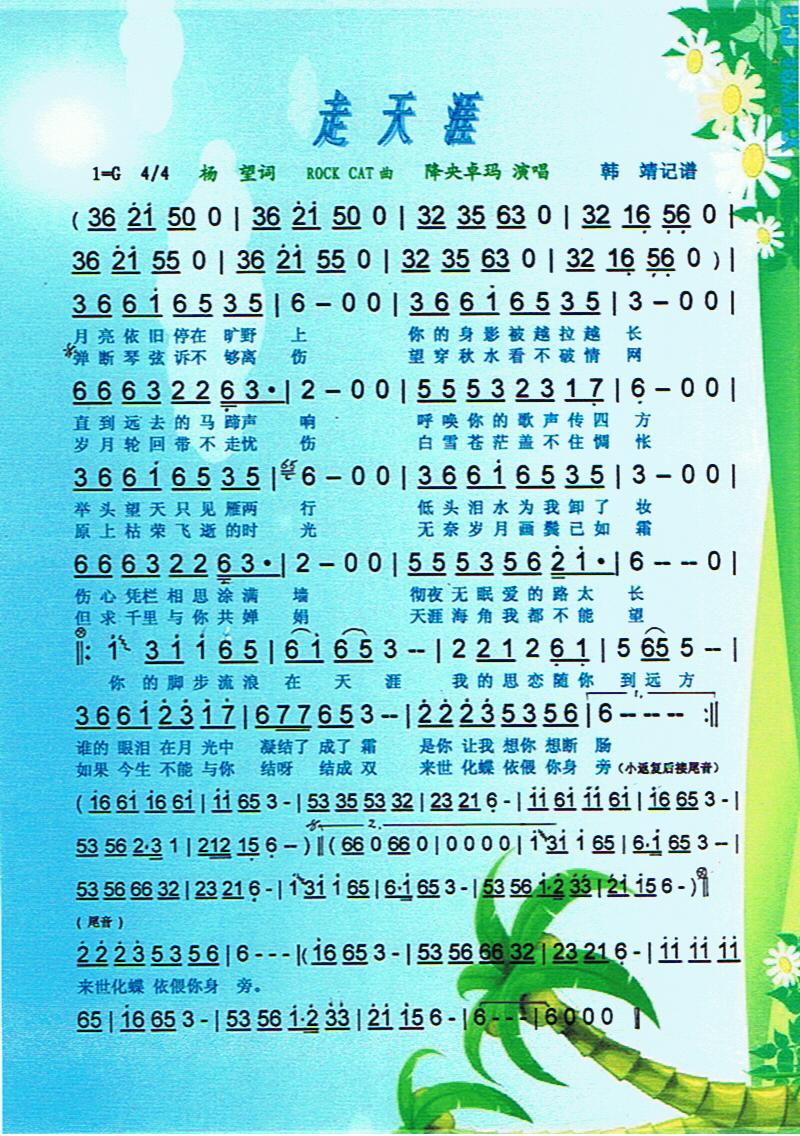 走天涯
1=G 4/4 杨 望词 ROCK CAT 曲 降央卓玛 演唱 韩 靖记谱
( 36 2̇1̇ 50 0 | 36 2̇1̇ 50 0 | 32 35 63 0 | 32 16̣ 5̣6̣ 0 |
36 2̇1̇ 55 0 | 36 2̇1̇ 55 0 | 32 35 63 0 | 32 16̣ 5̣6̣ 0 ) |
3 6 6 1̇ 6 5 3 5 | 6 – 0 0 | 3 6 6 1̇ 6 5 3 5 | 3 – 0 0 |
月 亮 依 旧 停在 旷野 上 你 的 身 影 被 越 拉 越 长
弹 断 琴 弦 诉不 够离 伤 望 穿 秋 水 看 不 破 情 网
6 6 6 3 2 2 6̣ 3 • | 2 – 0 0 | 5 5 5 3 2 3 1 7̣ | 6̣ – 0 0 |
直 到 远 去 的 马 蹄声 响 呼 唤 你 的 歌 声 传 四 方
岁 月 轮 回 带 不 走忧 伤 白 雪 苍 茫 盖 不 住 惆 怅
3 6 6 1̇ 6 5 3 5 | 65 6 – 0 0 | 3 6 6 1̇ 6 5 3 5 | 3 – 0 0 |
举 头 望 天 只 见 雁两 行 低 头 泪 水 为 我 卸 了 妆
原 上 枯 荣 飞 逝 的时 光 无 奈 岁 月 画 鬓 已 如 霜
6 6 6 3 2 2 6̣ 3 • | 2 – 0 0 | 5 5 5 3 5 6 2̇ 1̇ • | 6 – – – 0 |
伤 心 凭栏 相 思 涂 满 墙 彻夜 无 眠 爱 的 路 太 长
但 求 千里 与 你 共 婵 娟 天涯 海 角 我 都 不 能 望
‖: 1̇ 3̇ 1̇ 1̇ 6 5 | 6 1̇ 6 5 3 – – | 2 2 1 2 6̣ 1 | 5 65 5 – – |
你 的 脚 步 流 浪 在 天 涯 我 的 思 恋 随 你 到 远 方
3 6 6 1̇ 2̇ 3̇ 1̇ 7 | 6 7 7 6 5 3 – – | 2̇ 2̇ 2̇ 3̇ 5 3 5 6 | 6 – – – – :‖ 1.
谁的 眼泪 在月 光中 凝结了 成了 霜 是你 让我 想你 想断 肠
如果 今生 不能 与你 结呀 结成 双 来世 化蝶 依偎 你身 旁（小返复后接尾音）
( 1̇6 61̇ 1̇6 61̇ | 1̇1̇ 65 3 - | 53 35 53 32 | 23 21 6̣ - | 1̇1̇ 61̇ 1̇1̇ 61̇ | 1̇6 65 3 - |
53 56 2·3 1 | 212 15̣ 6̣ – ) ‖ ( 66 0 66 0 | 0 0 0 0 | 1̇ 3̇1̇ 1̇ 65 | 6·1̇ 65 3 – | 2.
53 56 66 32 | 23 21 6̣ - | 1̇ 3̇1̇ 1̇ 65 | 6·1̇ 65 3 - | 53 56 1̇·2̇ 3̇3̇ | 2̇1̇ 1̇5 6 - ) ‖
( 尾音 )
2̇ 2̇ 2̇ 3̇ 5 3 5 6 | 6 - - - |( 1̇6 65 3 - | 53 56 66 32 | 23 21 6̣ - | 1̇1̇ 1̇1̇ 1̇1̇
来世化蝶 依偎你身 旁。
65 | 1̇6 65 3 - | 53 56 1̇·2̇ 3̇3̇ | 2̇1̇ 1̇5 6 - | 6 - - - | 6 0 0 0 ‖